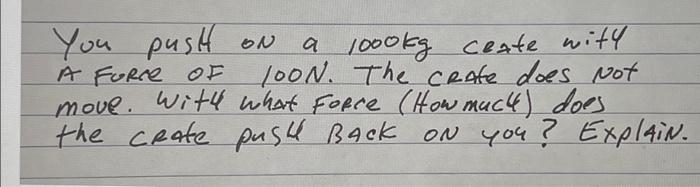 You push on a 1000kg crate with
A Force OF 100N. The crate does not
move. With what Force (How much) does
the crate push Back on you? Explain.